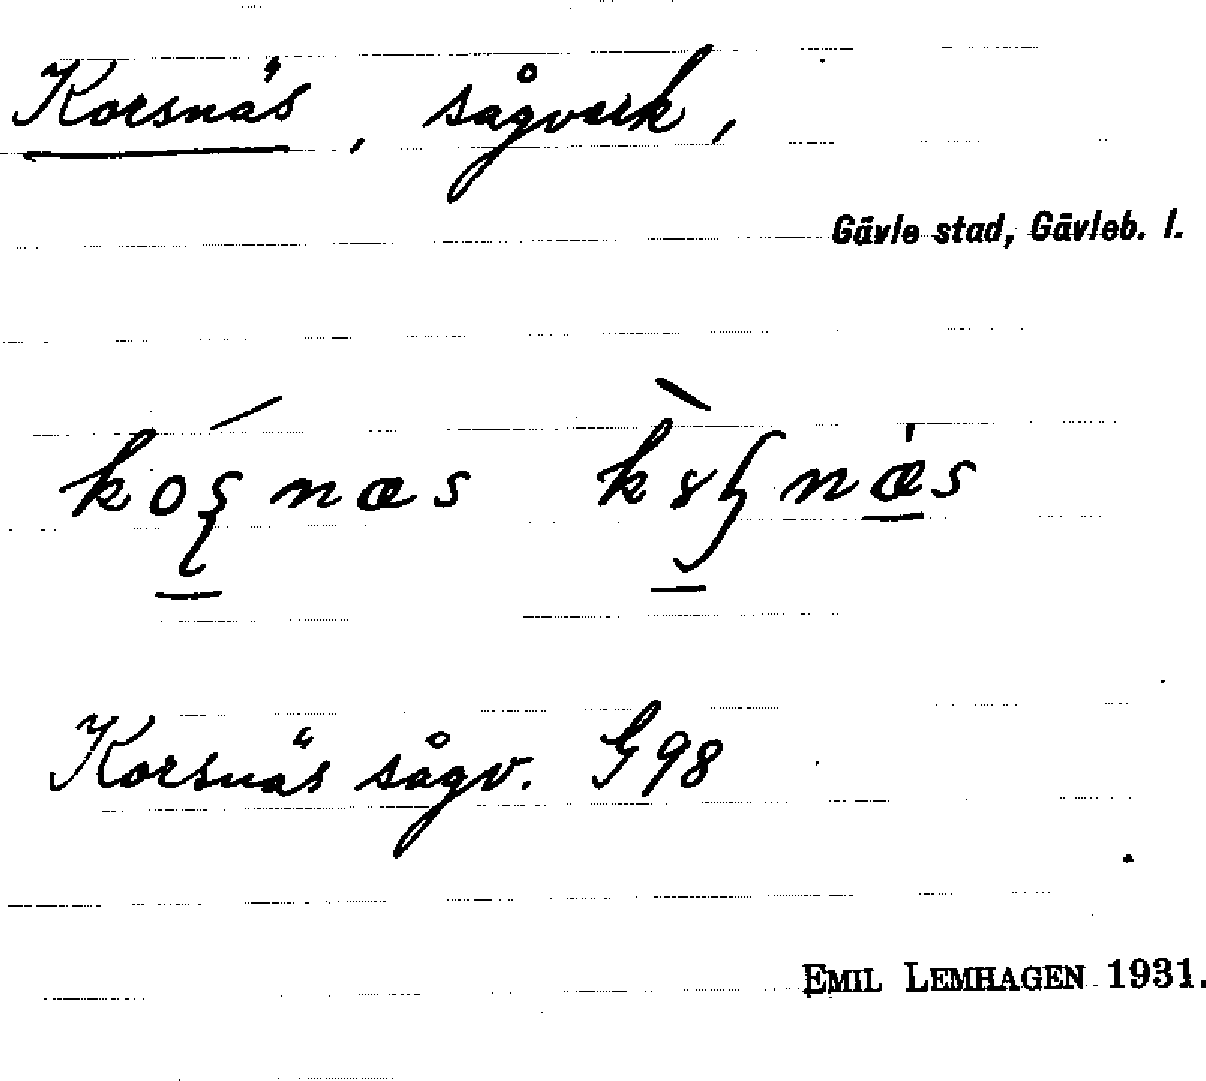 Korsnäs, sågverk,
Gävle stad, Gävleb. l.
Korsnäs sågv. G98
EMIL LEMHAGEN 1931.